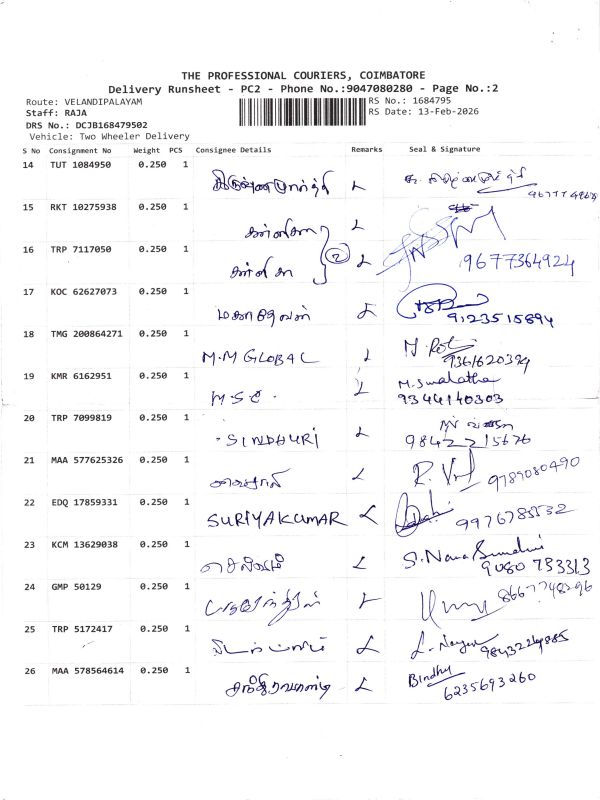 THE PROFESSIONAL COURIERS, COIMBATORE
Delivery Runsheet - PC2 - Phone No.:9047080280 - Page No.:2
Route: VELANDIPALAYAM RS No.: 1684795
Staff: RAJA RS Date: 13-Feb-2026
DRS No.: DCJB168479502
Vehicle: Two Wheeler Delivery
S No Consignment No Weight PCS Consignee Details Remarks Seal & Signature
14 TUT 1084950 0.250 1
15 RKT 10275938 0.250 1
16 TRP 7117050 0.250 1 2 9677364924
17 KOC 62627073 0.250 1 மகாதேவன் 9123515894
18 TMG 200864271 0.250 1 M.M GLOBAL
19 KMR 6162951 0.250 1 M.S.C. M. Swalatha 9344140303
20 TRP 7099819 0.250 1 SINDHURI 9842215676
21 MAA 577625326 0.250 1 9789080490
22 EDQ 17859331 0.250 1 SURIYAKUMAR
23 KCM 13629038 0.250 1 செல்வம் 9080 753313
24 GMP 50129 0.250 1 8667748296
25 TRP 5172417 0.250 1
26 MAA 578564614 0.250 1 Bindhu 6235693260